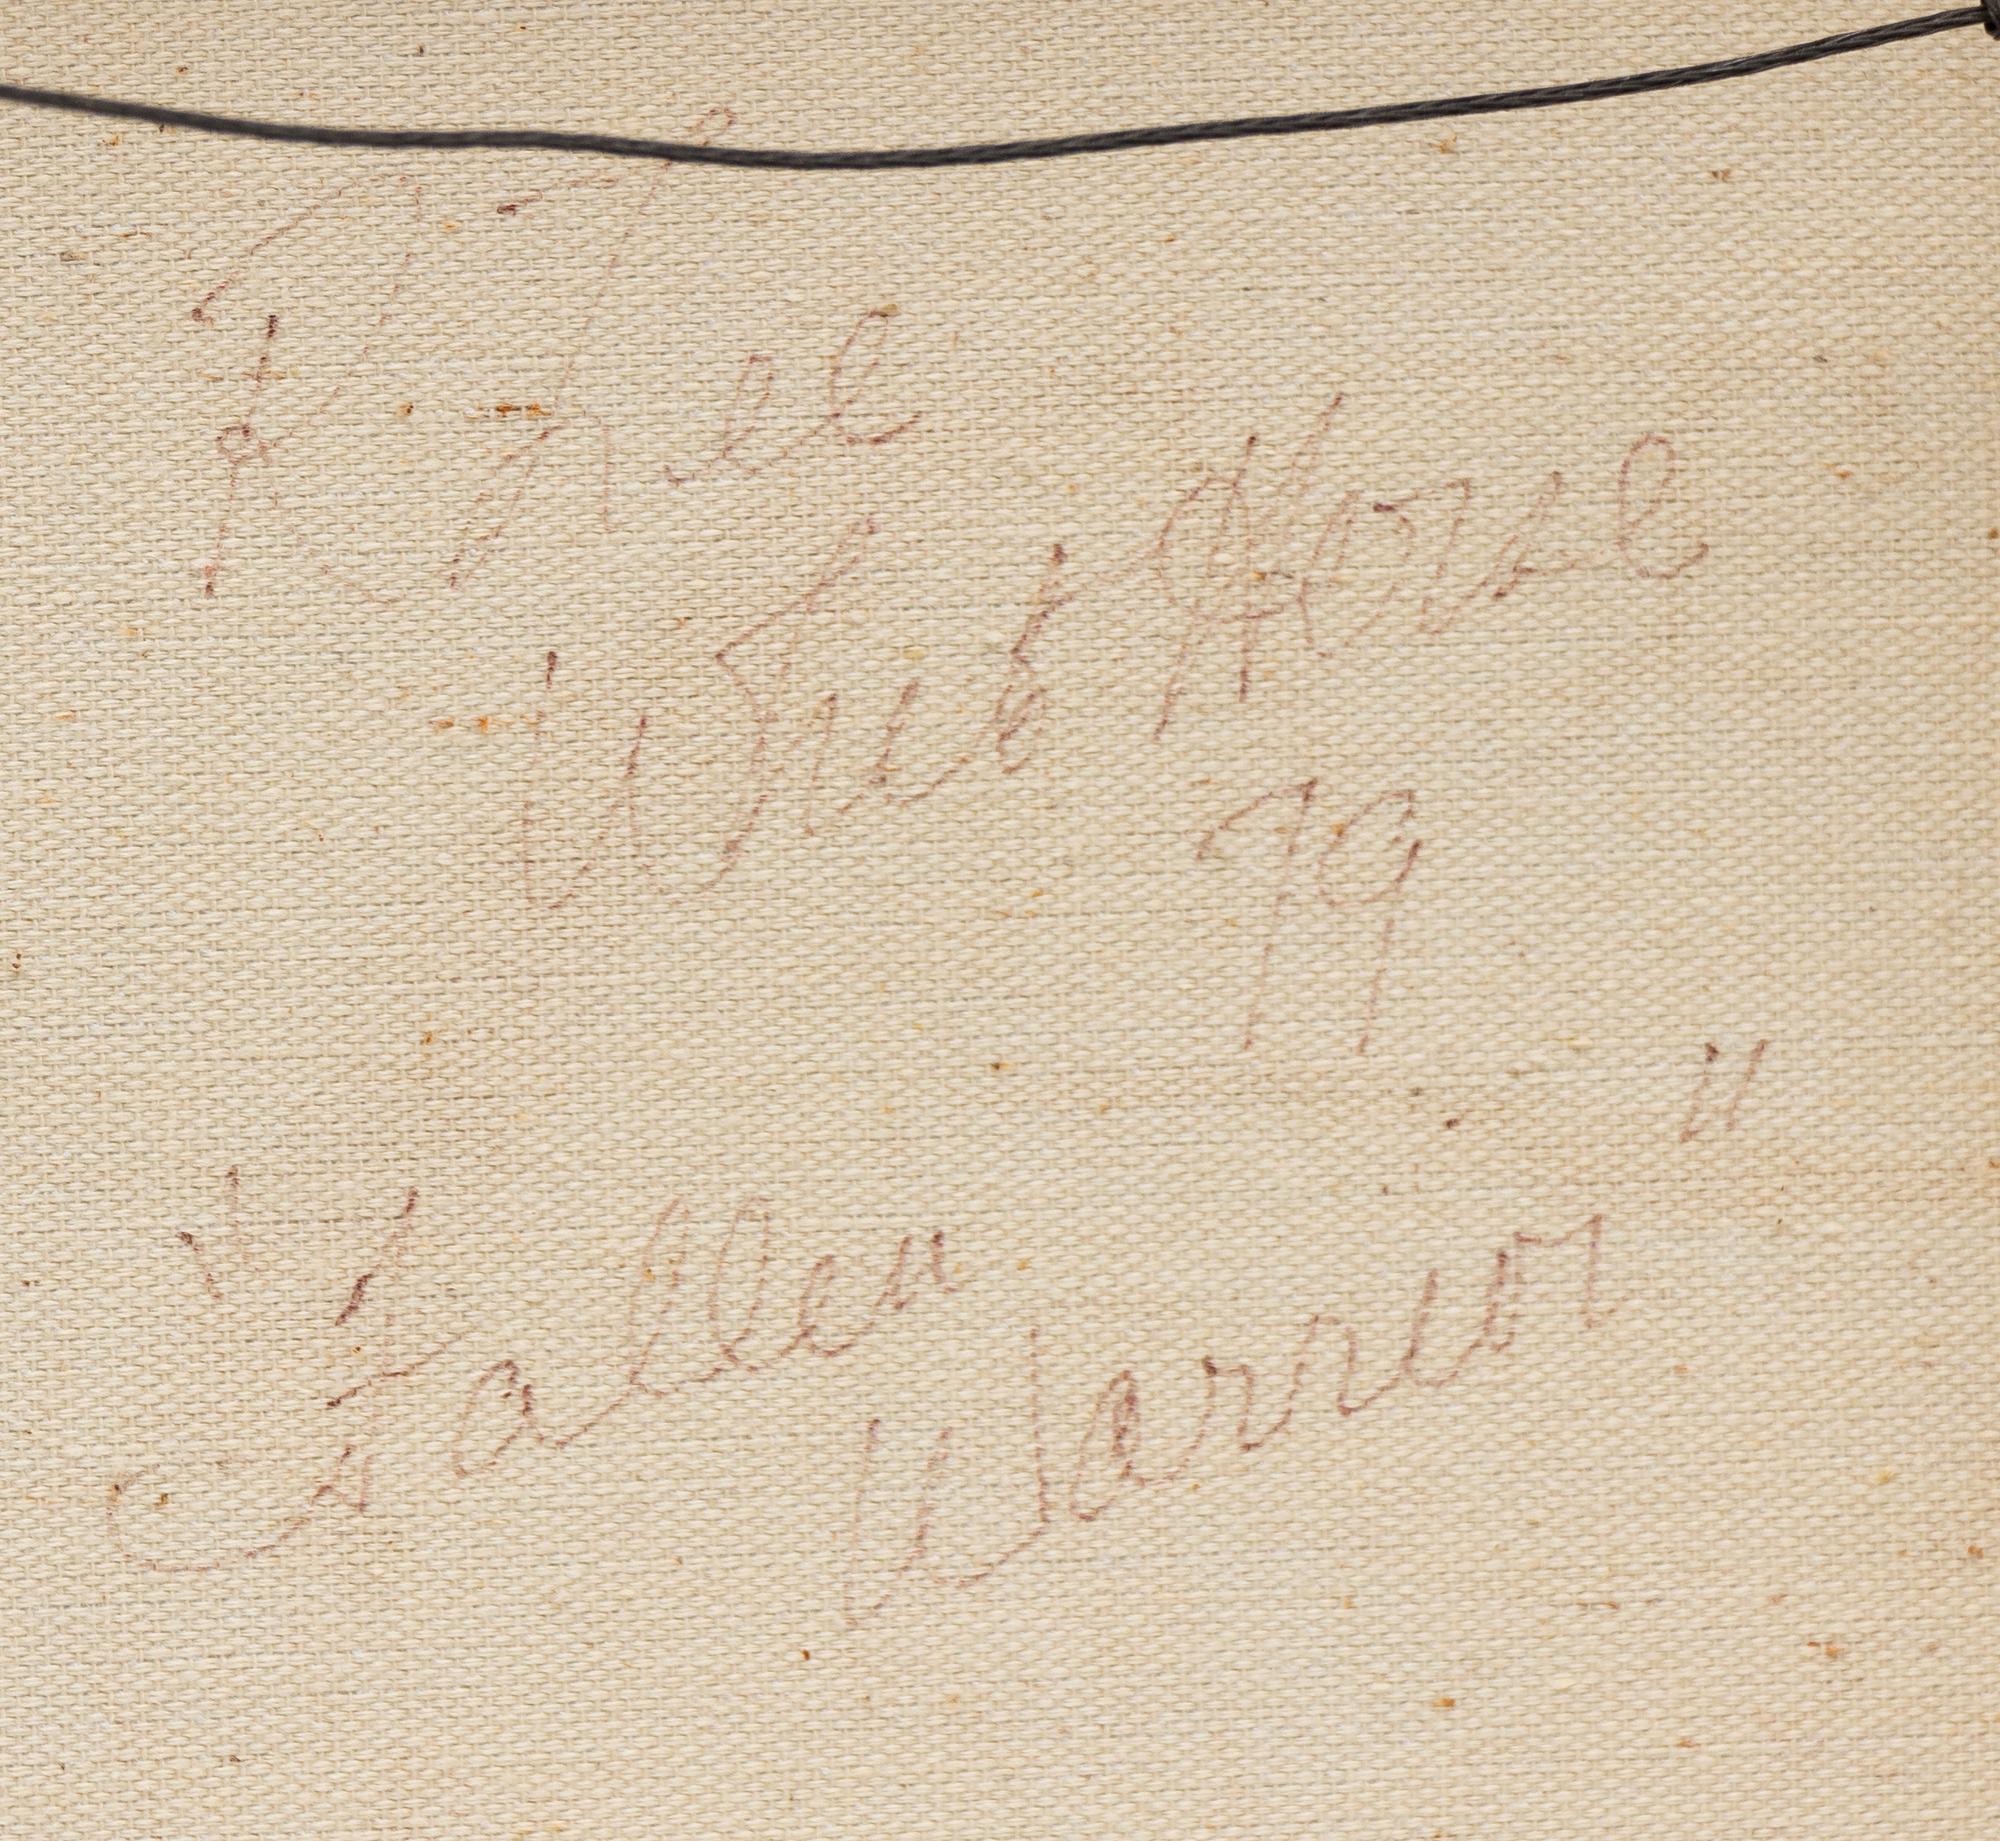 R Lee
White Horse
79
" Fallen
Warrior "